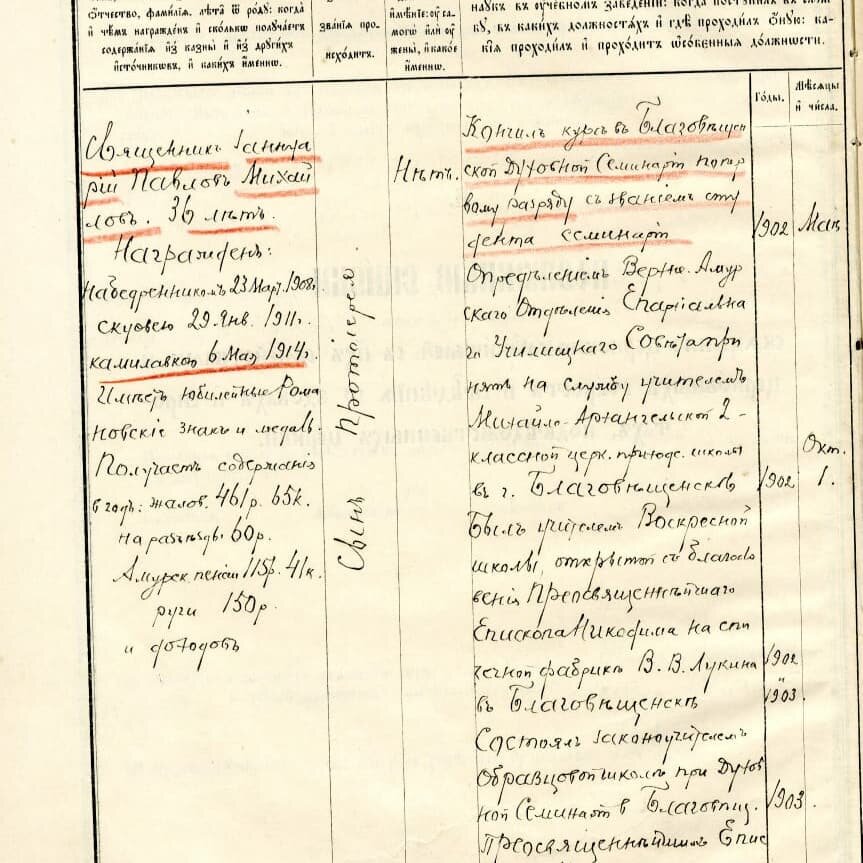 Ѻтчество, фамилїѧ, лѣта ѿ родꙋ: когда
и чѣмъ награжденъ и сколькѡ полꙋчаетъ
содержанїѧ изъ казны и изъ дрꙋгихъ
источникѡвъ, и какихъ именнѡ.
званїѧ про-
исходитъ.
имѣнїе: ᲂу са-
могѡ или ᲂу
жены, и какое
именнѡ.
наукъ въ ᲂучебномъ заведенїи: когда постꙋпилъ въ слꙋж-
бꙋ, въ какихъ должностѧхъ и гдѣ проходилъ ѻнꙋю: ка-
кїѧ проходилъ и проходитъ ѡсобенныѧ должности.
Годы.
Мѣсѧцы
и числа.
Священникъ Іаннуа
рій Павловъ Михай
ловъ. 36 лѣтъ.
Награжденъ:
Набедренникомъ 23 Март. 1908г.
скуфьею 29 Янв. 1911г.
камилавкою 6 Мая 1914г.
Имѣетъ юбилейные Рома
новскіе знакъ и медаль.
Получаетъ содержанія
въ годъ: жалов. 461р. 65к.
на разъѣзды 60р.
Амурск. пенсіи 115р. 41к.
руги 150р.
Сынъ Протоіерея
Нѣтъ.
Кончилъ курсъ въ Благовѣщен
ской Духовной Семинаріи по пер
вому разряду съ званіемъ сту
дента семинаріи
1902 Мая
Опредѣленіемъ Верхне-Амур
скаго Отдѣленія Епархіальна
го Училищнаго Совѣта при
нятъ на службу учителемъ
Михайло-Архангельской 2-
классной церк. приходс. школы
въ г. Благовѣщенскѣ
1902 Окт.
1.
Былъ учителемъ Воскресной
школы, открытой съ благосло
венія Преосвященнѣйшаго
Епископа Никодима на спи
чечной фабрикѣ В. В. Лукина
въ Благовѣщенскѣ
1902
1903.
Состоялъ законоучителемъ
Образцовой школы при Духов
ной Семинаріи въ Благовѣщ.
1903.
Преосвященнѣйшимъ Епис